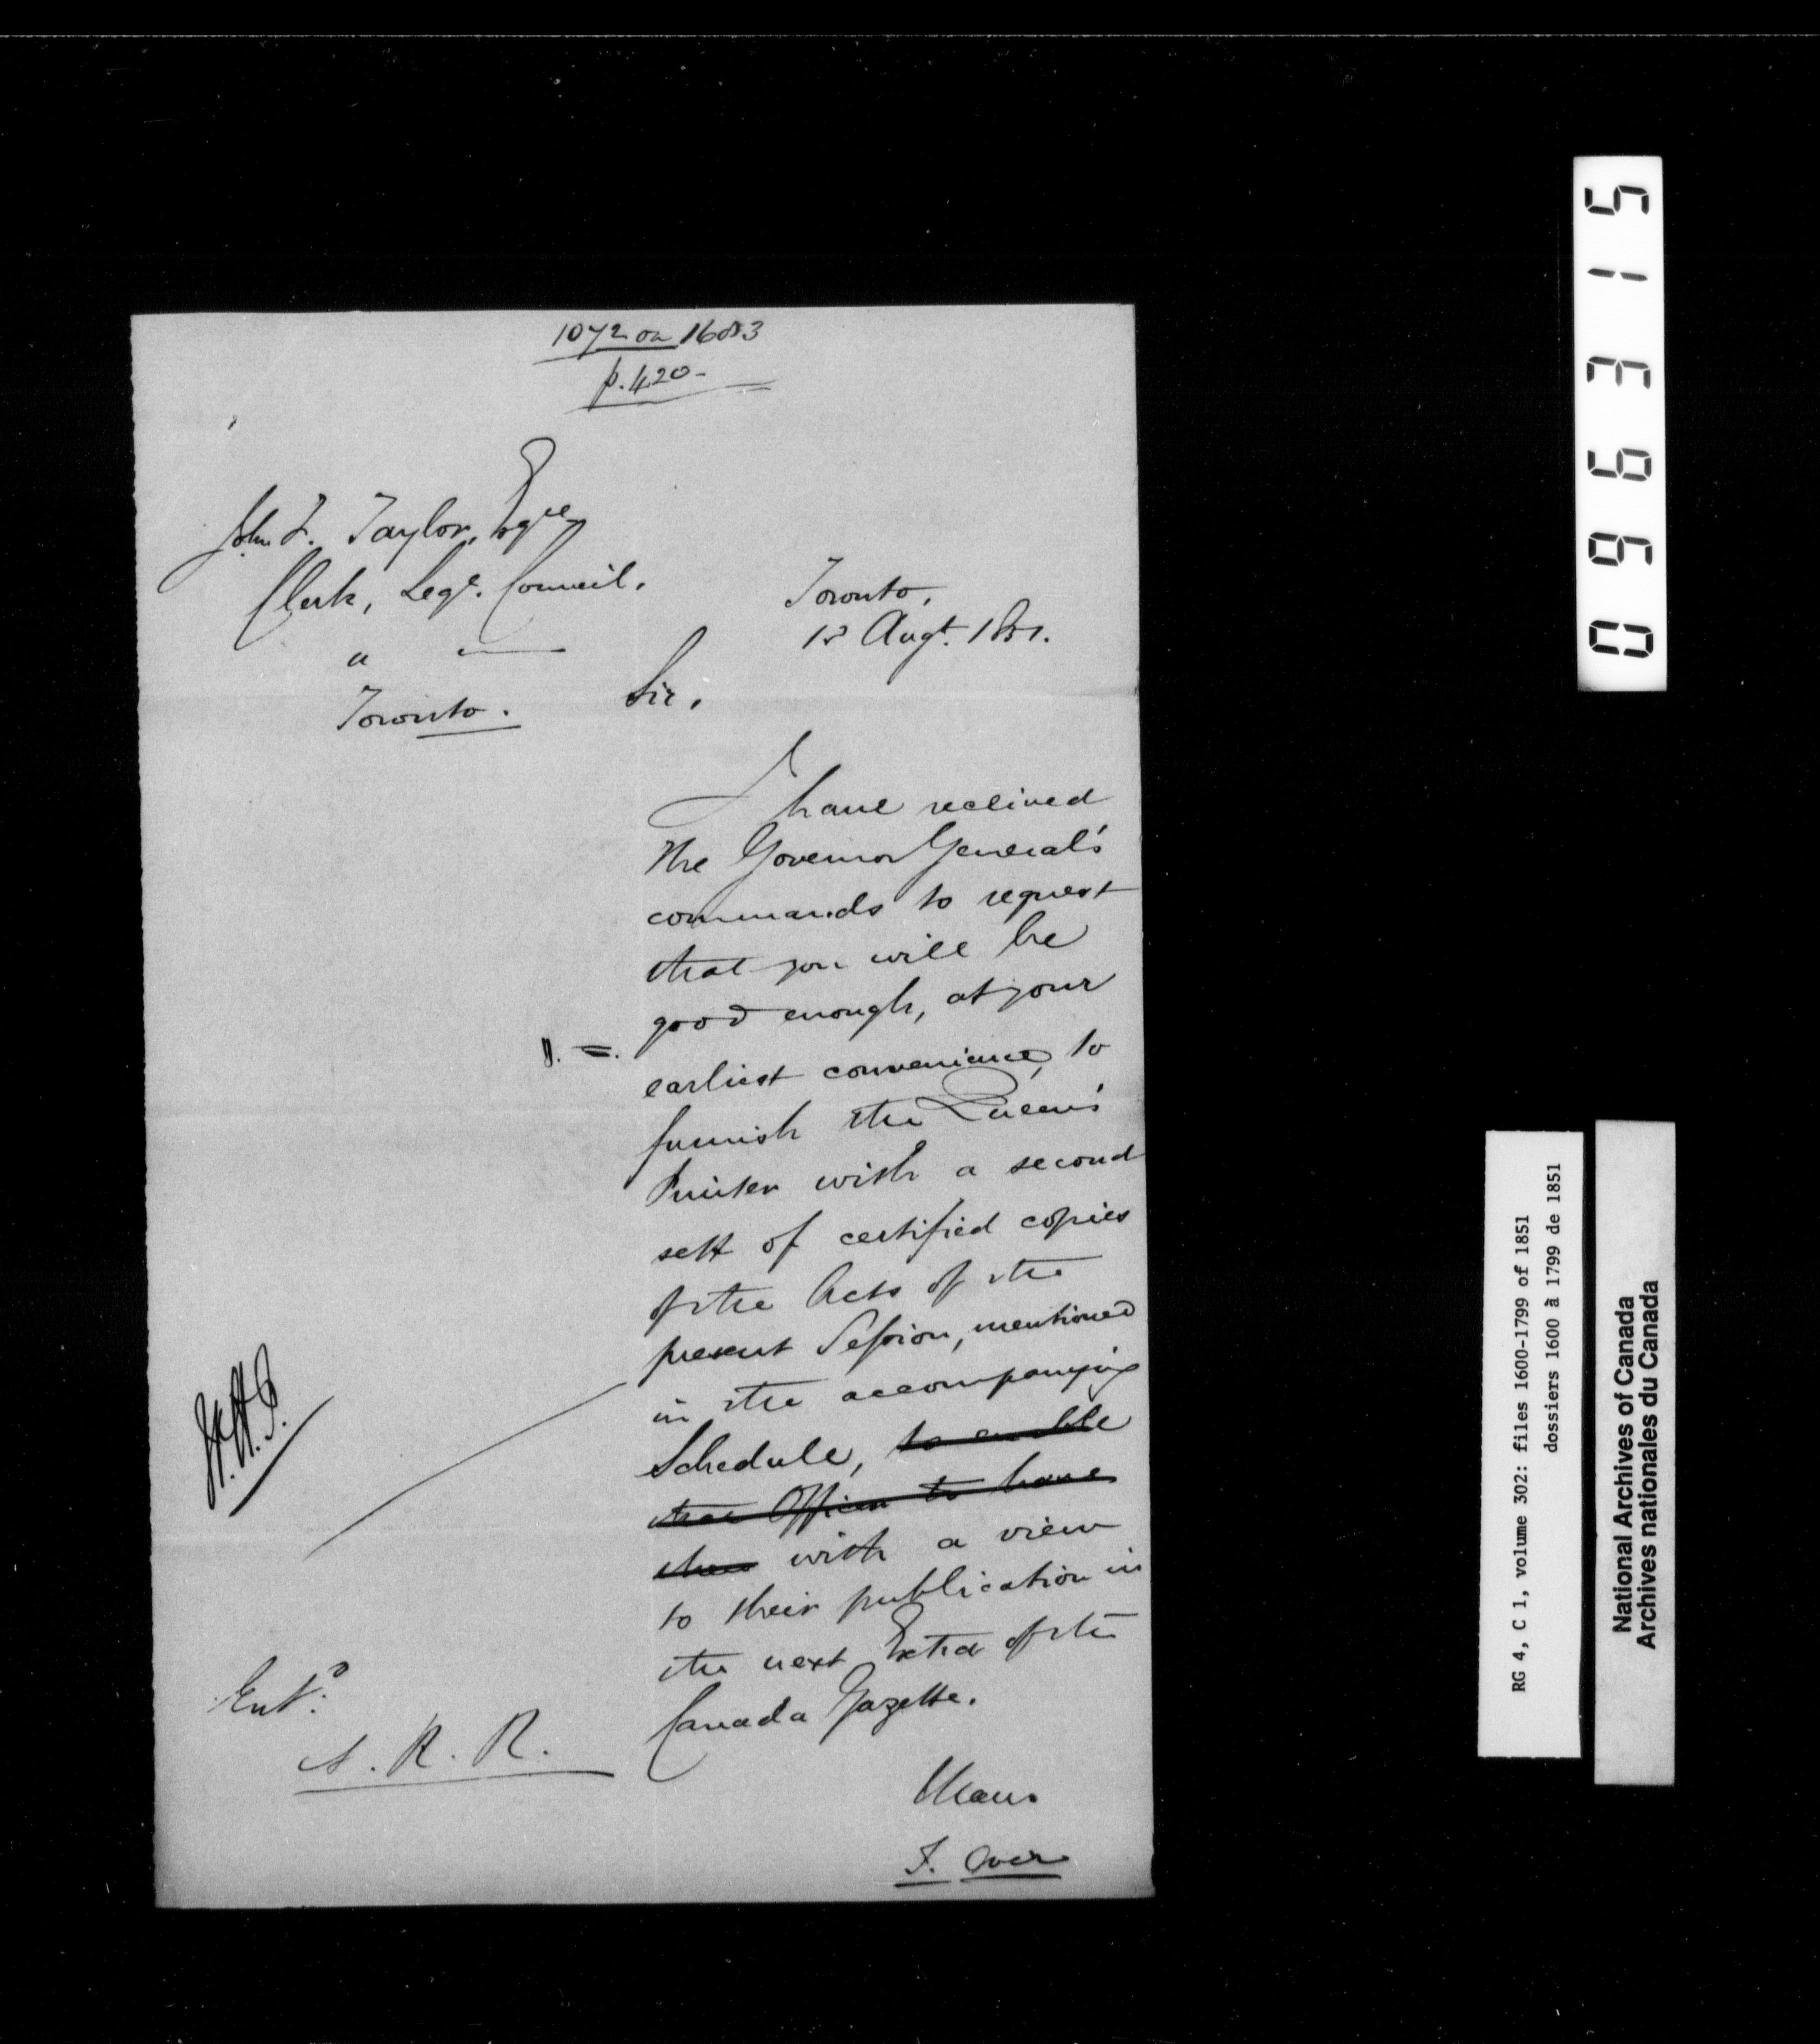 1072 on 1683
p. 420-
John F. Taylor, Esqre
Clerk, Legve. Council.
Toronto.
Toronto,
18 Augt. 1851.
Sir,
I have received
the Governor General's
commands to request
that you will be
good enough, at your
earliest convenience, to
furnish the Queen's
Printer with a second
sett of certified copies
of the Acts of the
present Session, mentioned
in the accompanying
Schedule, to enable
that Officer to have
them with a view
to their publication in
the next Extra of the
Canada Gazette.
Entd.
A. R. R.
T. Over
0 9 6 3 1 5
RG 4, C 1, volume 302: files 1600-1799 of 1851
dossiers 1600 à 1799 de 1851
National Archives of Canada
Archives nationales du Canada